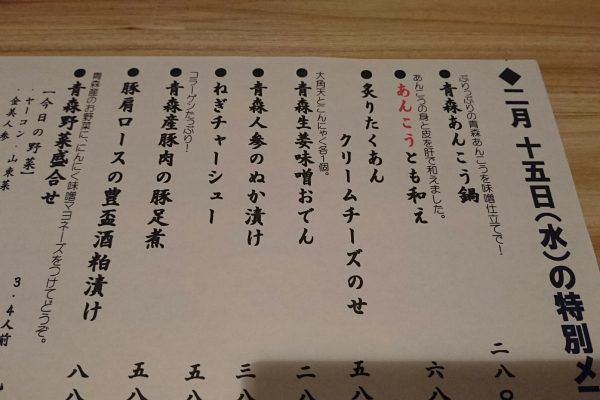 ◆二月 十五日(水)の特別メ
ぷりっぷりの青森あんこうを味噌仕立てで!
●青森あんこう鍋 二八〇
あんこうの身と皮を肝で和えました。
●あんこうとも和え 六八
●炙りたくあん
クリームチーズのせ 五八
大角天とこんにゃく各1個。
●青森生姜味噌おでん 二八
●青森人参のぬか漬け 三八
●ねぎチャーシュー 五八
コラーゲンたっぷり!
●青森産豚肉の豚足煮 五八
●豚肩ロースの豊盃酒粕漬け 八八
青森産のお野菜に、にんにく味噌マヨネーズをつけてどうぞ。
●青森野菜盛合せ
【今日の野菜】 3・4人前
・ヤーコン ・山東菜
・金美人参